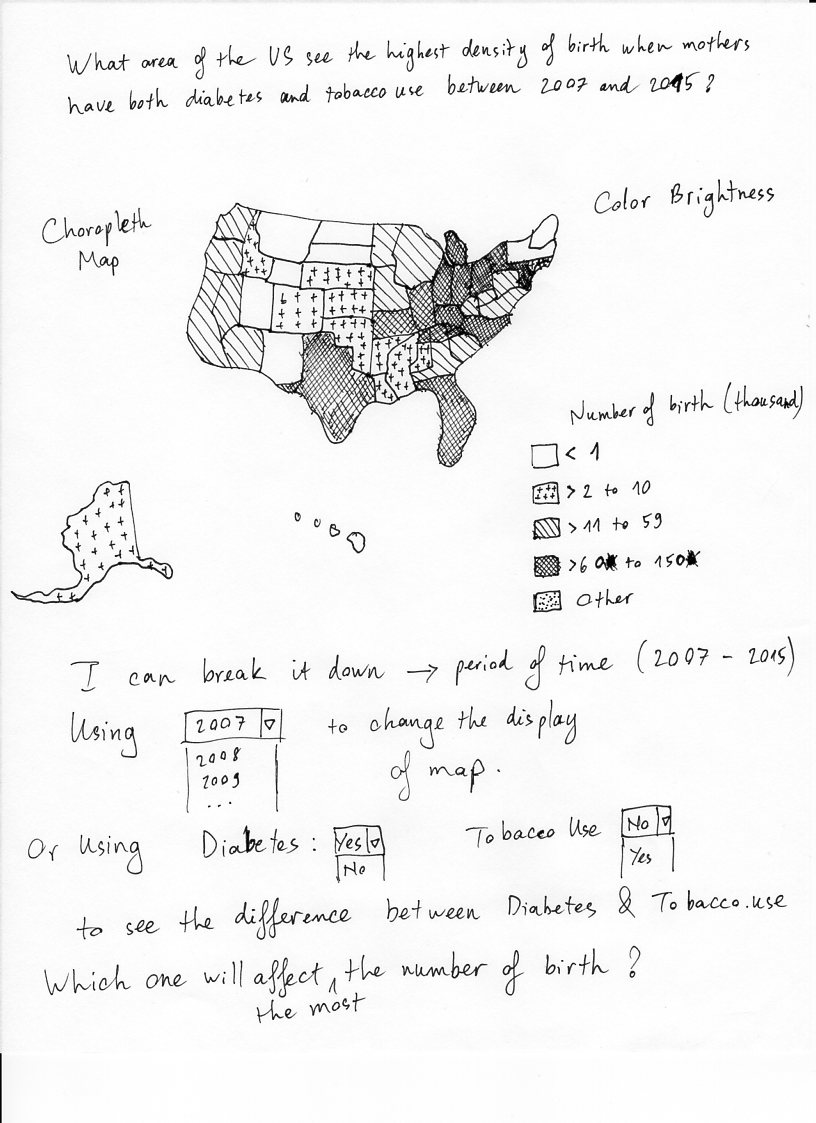 What area of the US see the highest density of birth when mothers
have both diabetes and tobacco use between 2007 and 2015?
Choropleth
Map
Color Brightness
Number of birth (thousand)
< 1
> 2 to 10
> 11 to 59
> 60 to 150
Other
I can break it down → period of time (2007 - 2015)
Using 2007 to change the display
2008
2009
...
of map.
Or Using Diabetes: Yes Tobacco Use No
No Yes
to see the difference between Diabetes & Tobacco.use
Which one will affect the number of birth?
the most